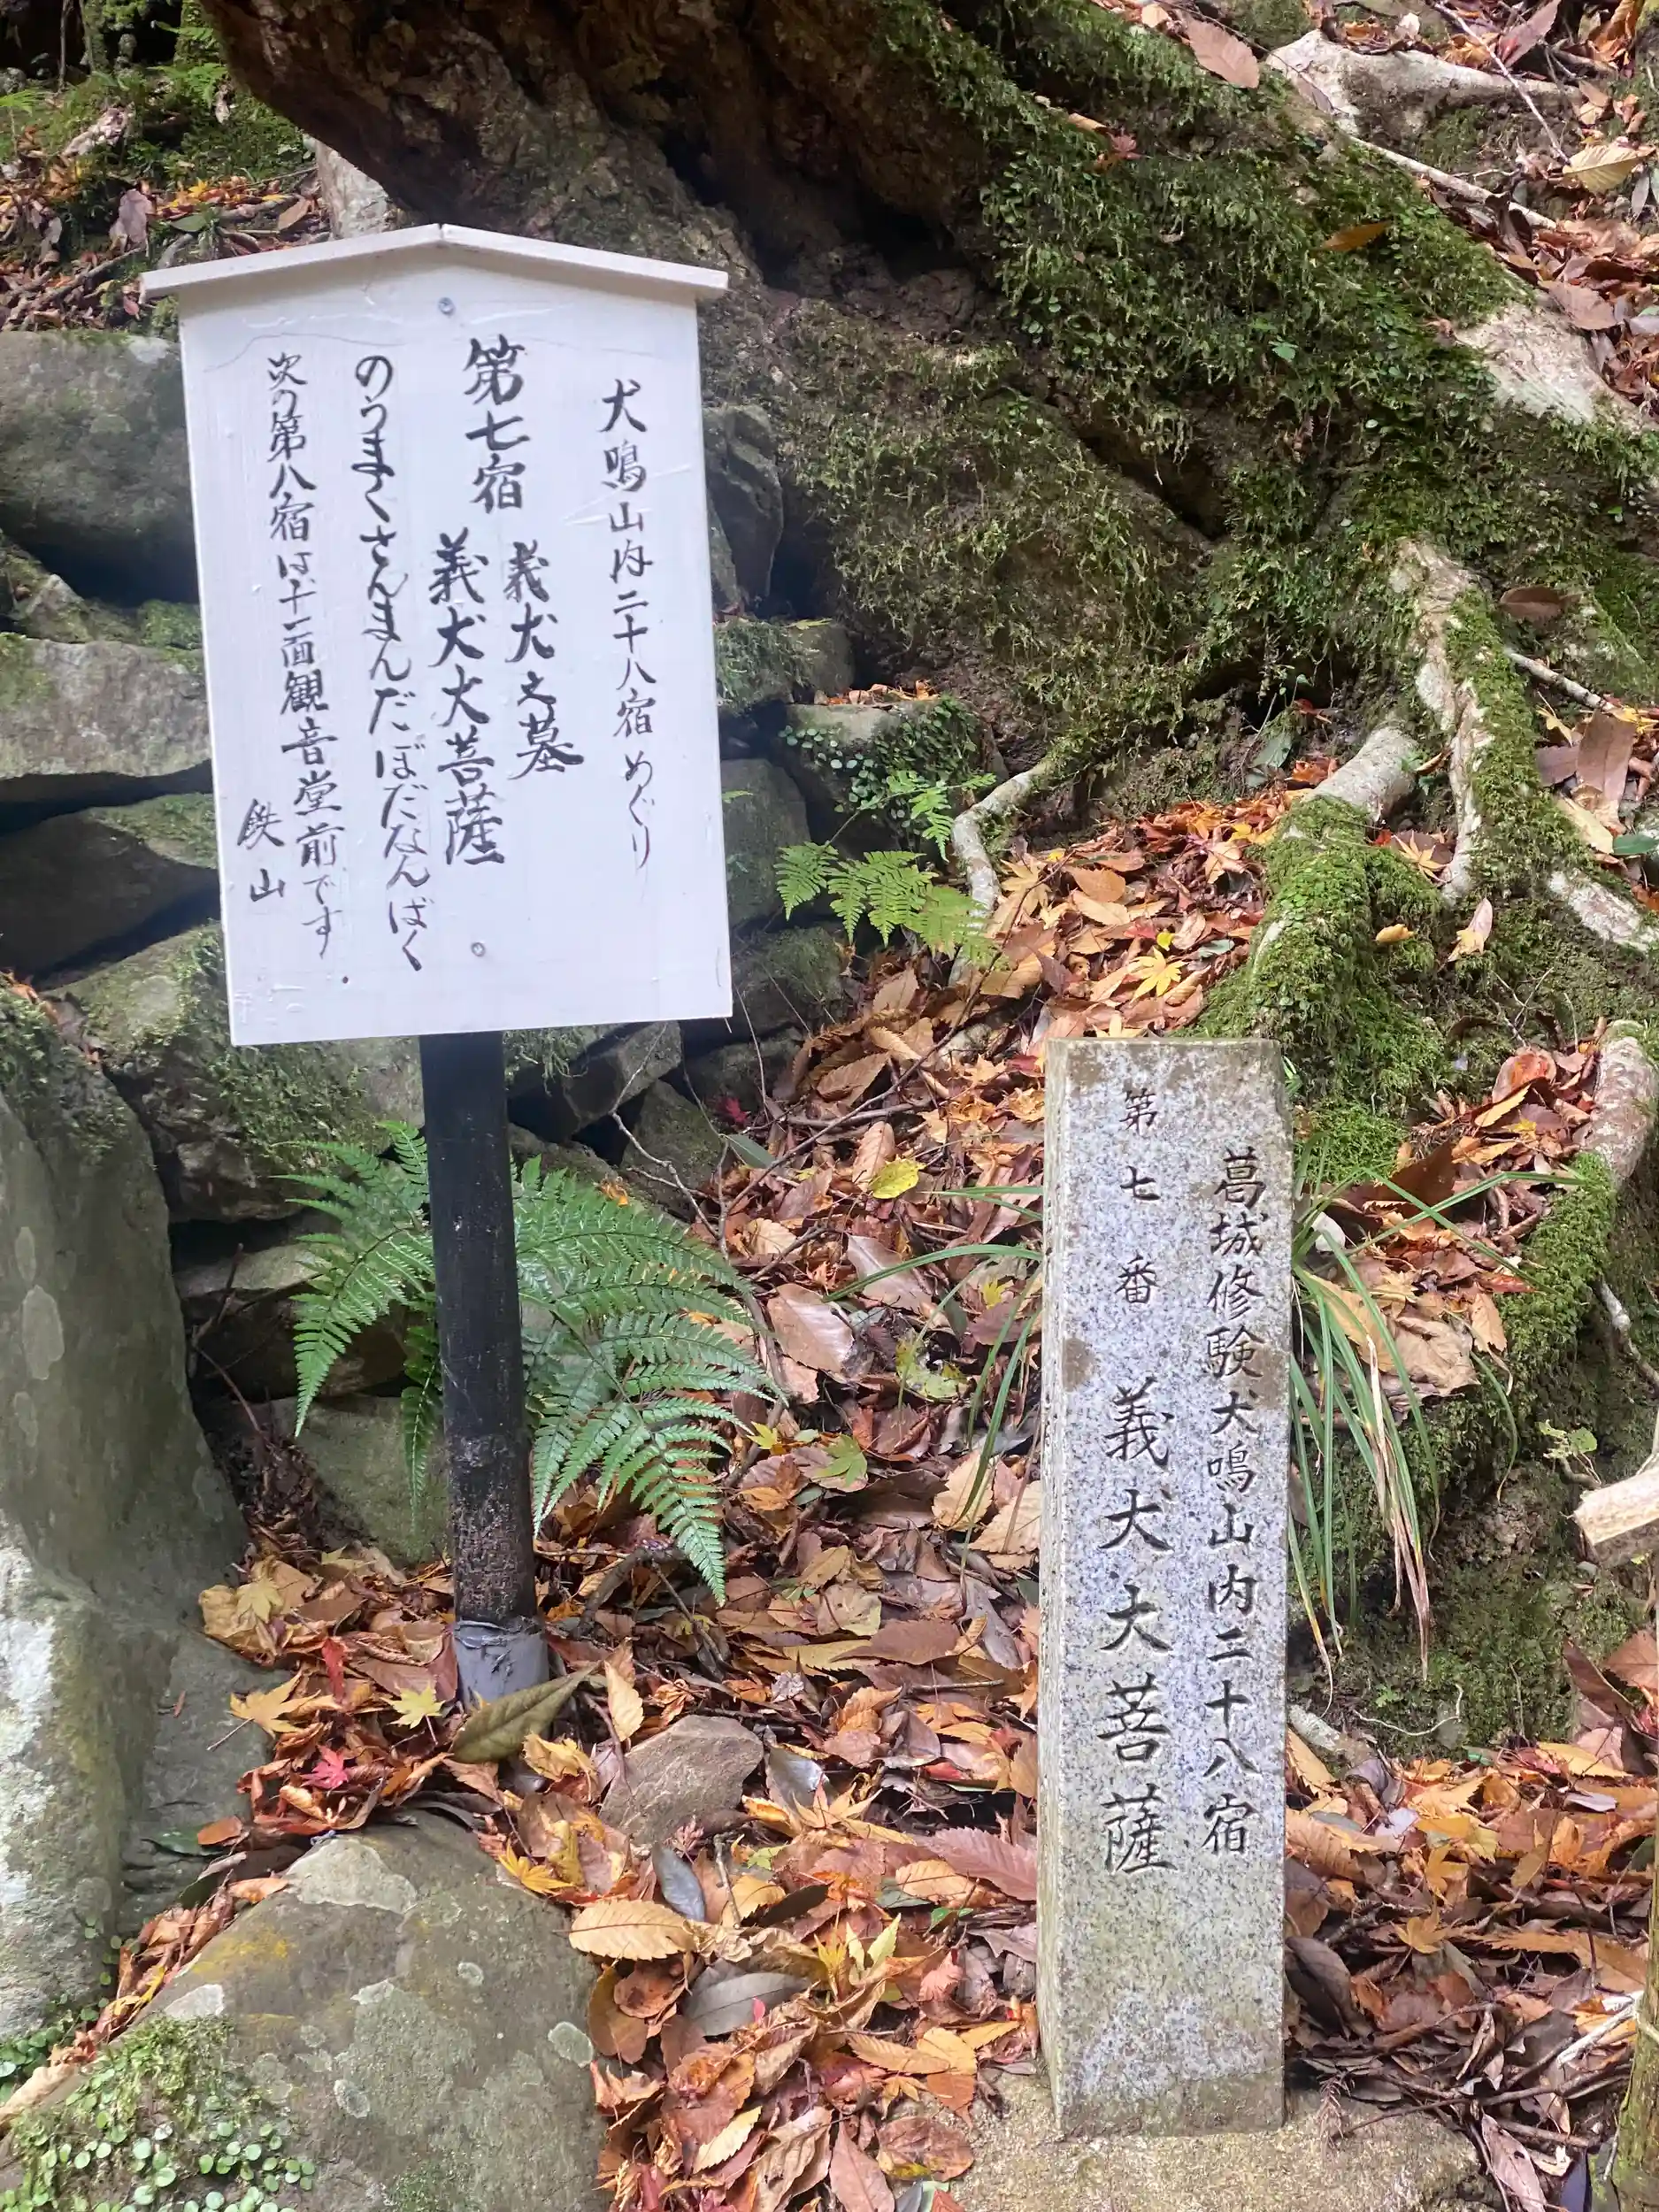 犬鳴山内二十八宿めぐり
第七宿
義犬之墓
義犬大菩薩
のうまくさんまんだぼだなんばく
次の第八宿は十一面観音堂前です
鉄山
葛城修験犬鳴山内二十八宿
第七番 義犬大菩薩